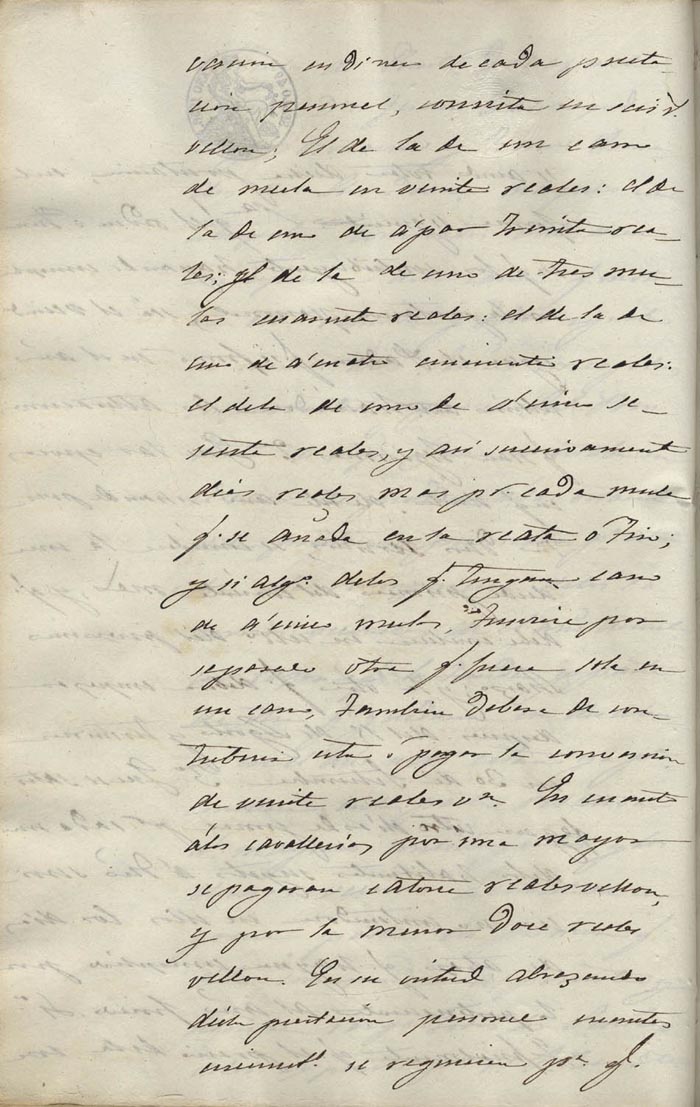 version en dinero de cada presta-
cion personal, consista en seis r.s
vellon; El de la de un carro
de mula en veinte reales: el de
la de uno de á par treinta rea-
les; y el de la de uno de tres mu-
las cuarenta reales: el de la de
uno de á cuatro cincuenta reales:
el dela de uno de á cinco se-
senta reales, y asi sucesivamente
diez reales mas pr. cada mula
q. se añada en la reata o tiro;
y si algo. delos q. tengan carro
de á cinco mulas, tuviere por
separado otra q. fuera sola en
un carro, tambien debera de con-
tribuir esta o pagar la conversion
de veinte reales vn. En cuanto
álas cavallerias por una mayor
se pagaran catorce reales vellon,
y por la menor doce reales
vellon. En su virtud abrazando
dicha prestacion personal cuantos
se requieren pa. q.